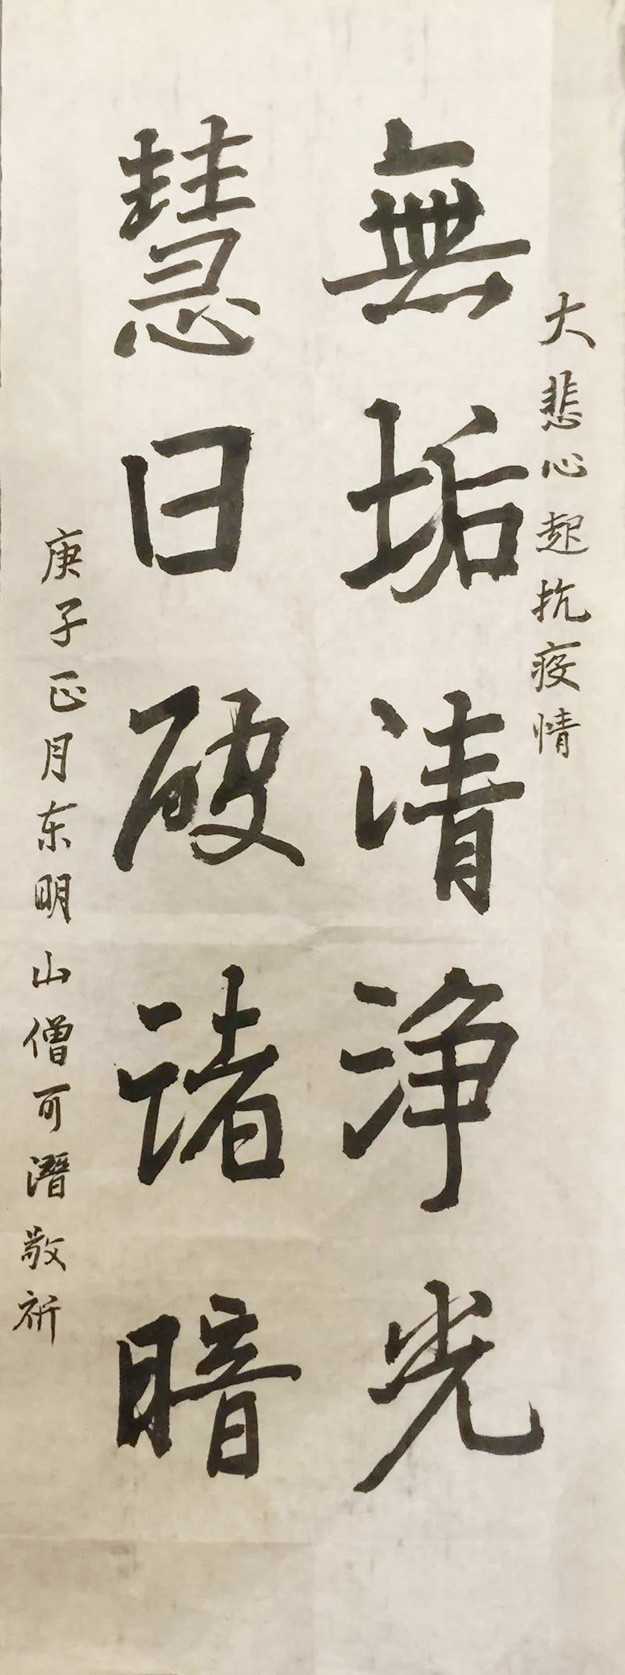 大悲心起抗疫情
無垢清浄光
慧日破诸暗
庚子正月东明山僧可潛敬祈